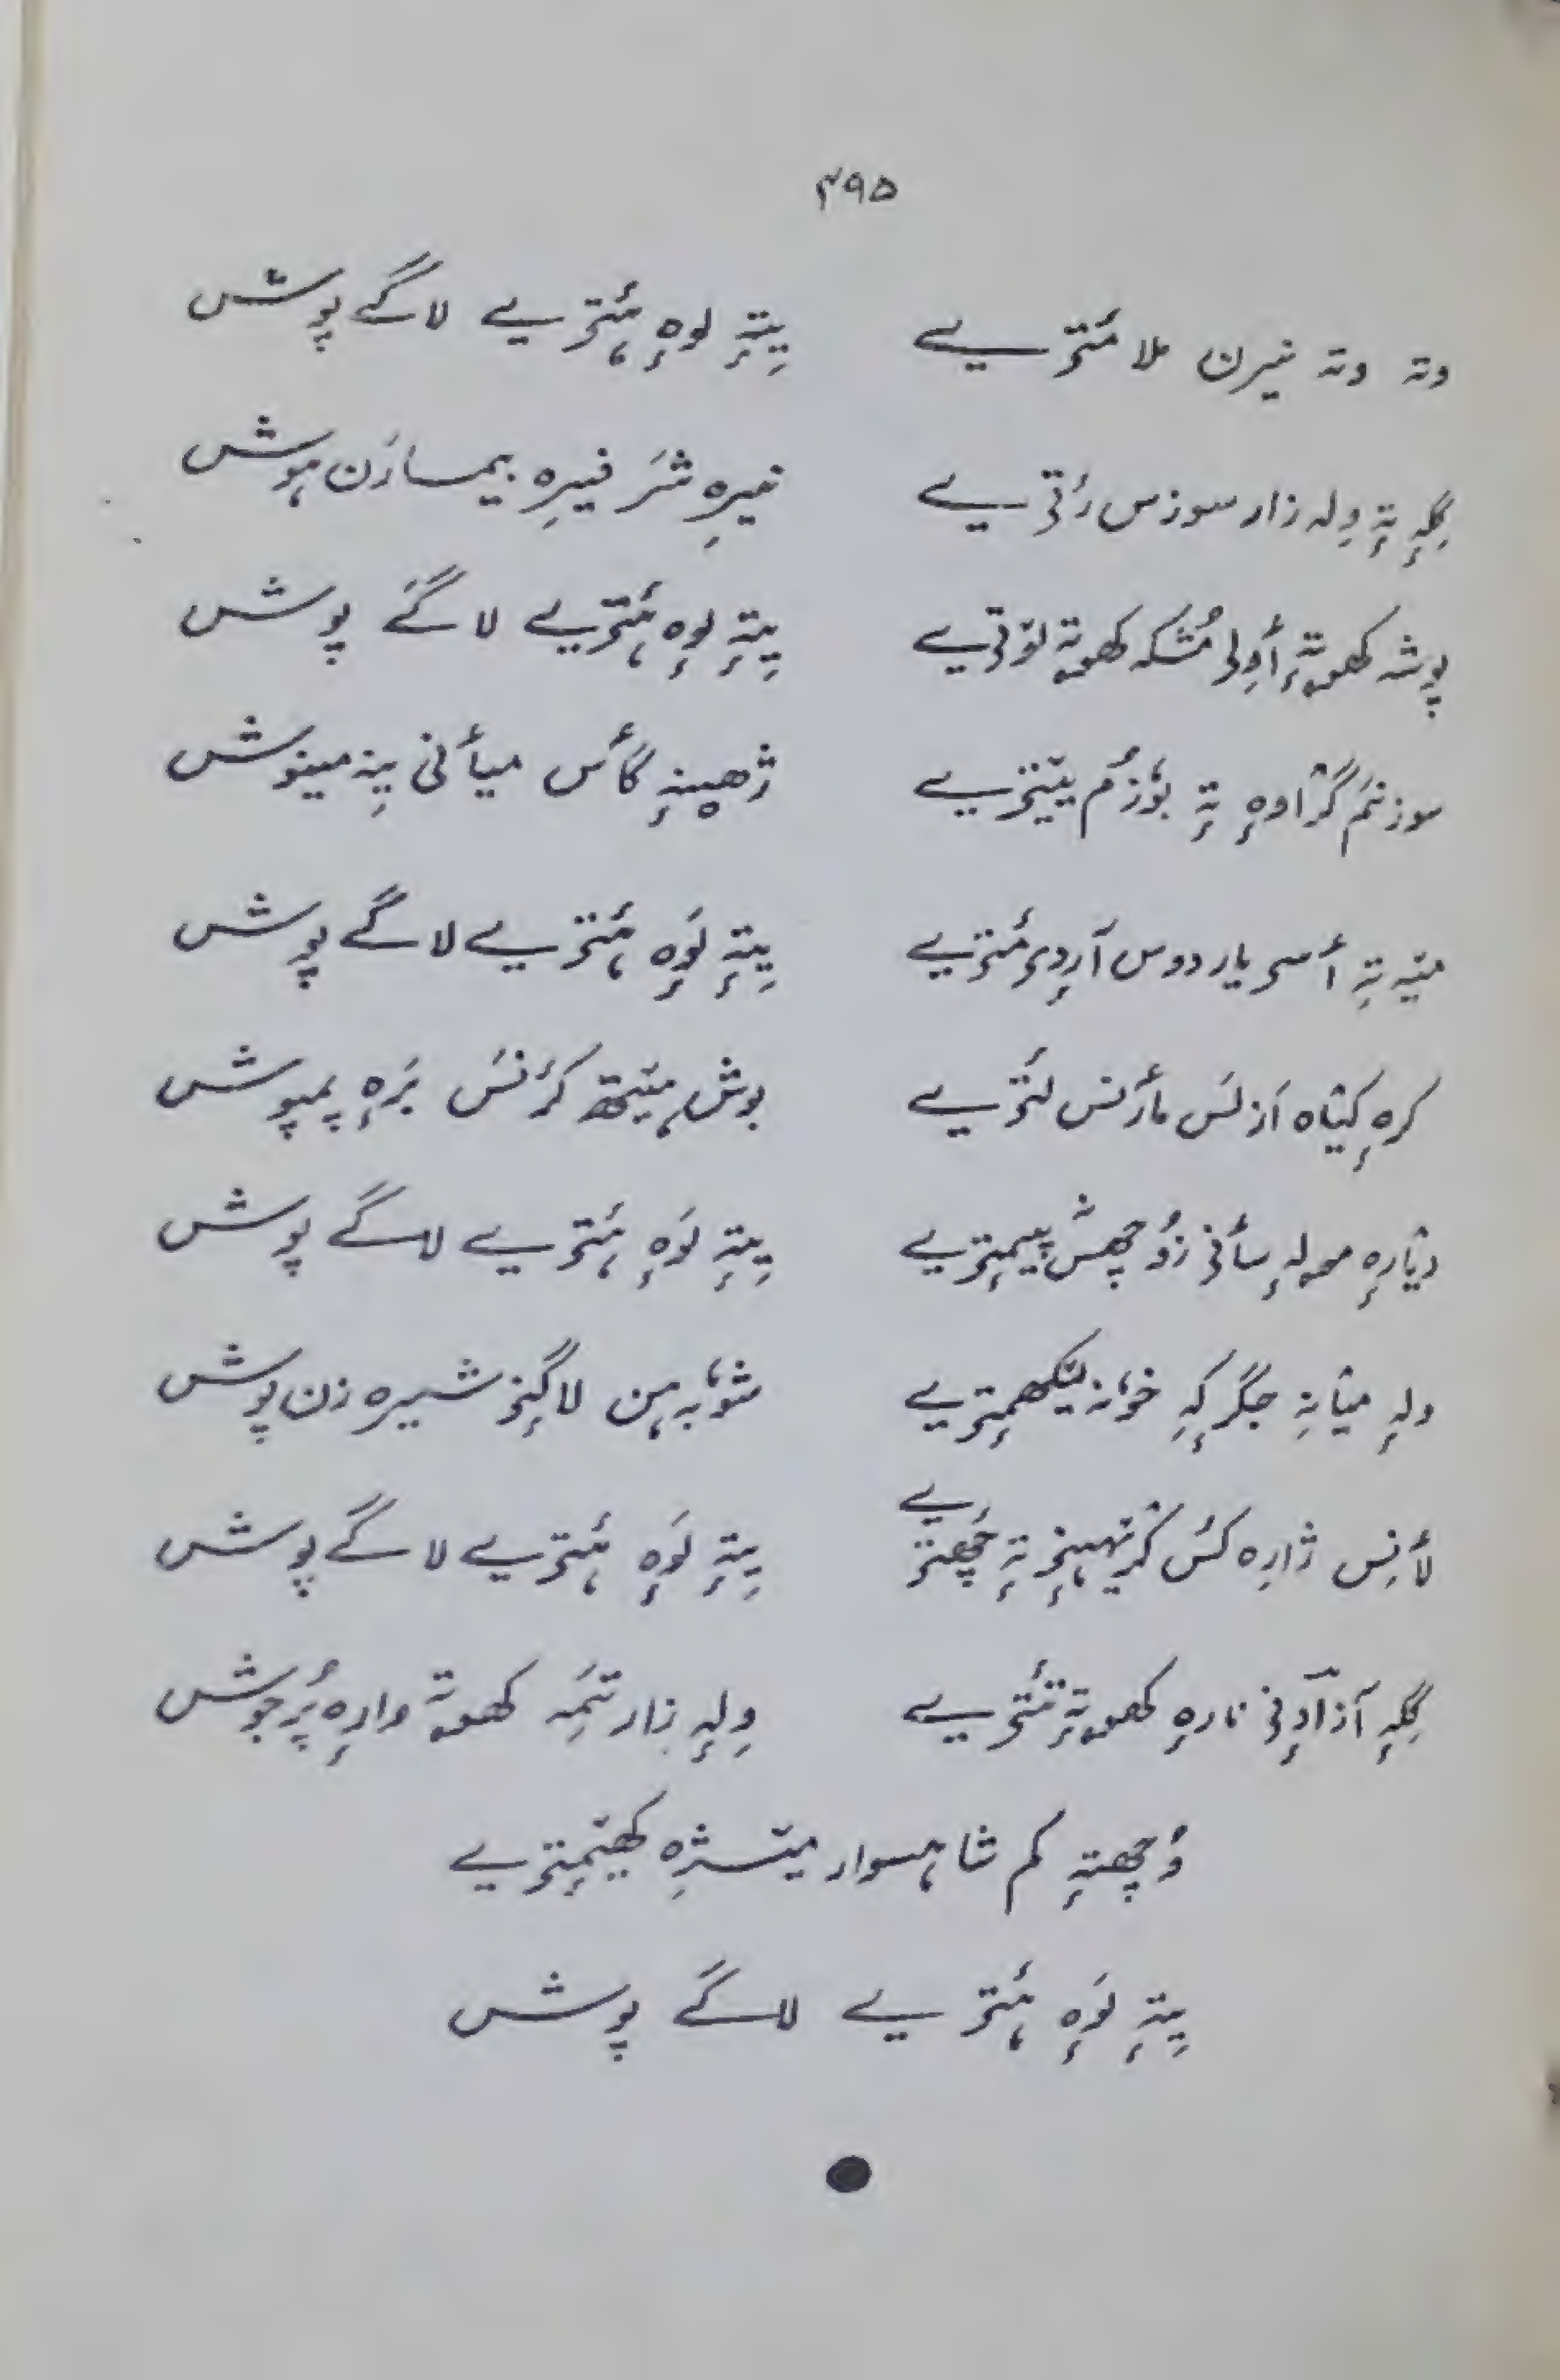 ۴۹۵
وتہ وتہ نیرن ملا مٔتریے یِتہٕ لوہٕ ۂتریے لاگے پوش
گِلہٕ تہٕ وِلہ زار سوزس رٔتیے نیرِہ شَر فیرِہ بیمارَن ہوش
پوشہ کھوتہٕ أولی مُشکہ کھوتہٕ لوٚتیے یِتہٕ لوہٕ ۂتریے لاگے پوش
سوزنم گرٛاوہٕ تہٕ بوٗزٕم ژھینہٕ گأس میأنی مینوش
مینہ تہٕ أسی یار دوس آردٕی مٔتریے یِتہٕ لَوہٕ ۂتریے لاگے پوش
کرہٕ کیٛاہ اَزلَس مأرنس لٔتریے بوش ہیٚتھ کرٔنسَ بَرہٕ پمپوش
دیٛارہٕ مولہٕ سأنی زُو چھِس پیمٕتریے یِتہٕ لَوہٕ ۂتریے لاگے پوش
ولہٕ میٛانہِ جگرکہِ خوٗنہ لیکھمٕتریے شوٗبہ ہن لاگِنۍ شیرہ زن پوش
لأنِس ژارہ کُس کٔرۍ تہٕ چھٔتریے یِتہٕ لَوہٕ ۂتریے لاگے پوش
گِلہٕ آزادٕنی نارہٕ کھوتہٕ تٔتریے وِلہٕ زار تمَہ کھوتہٕ وارہٕ پُرجوش
وُچھتہٕ کم شاہسوار میٚژِہ کھیٚمٕتریے
یِتہٕ لَوہٕ ۂتریے لاگے پوش